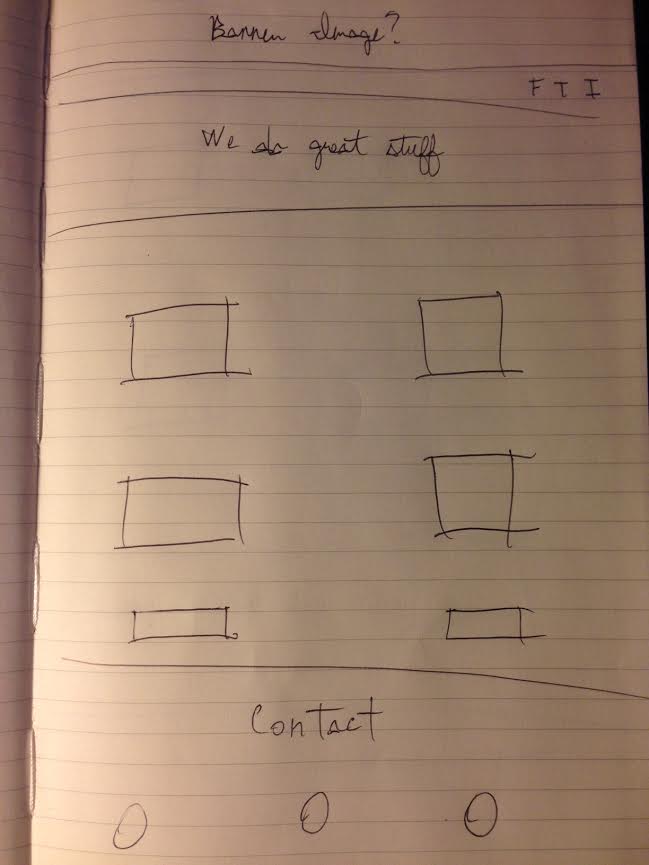 Banner Image?
F T I
We do great stuff
Contact